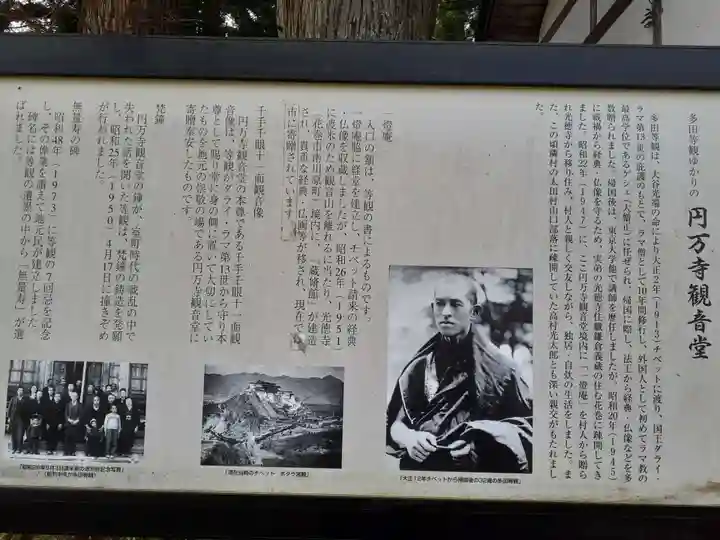 多田等観ゆかりの
円万寺観音堂
多田等観は、大谷光瑞の命により大正2年(1913)チベットに渡り、国王ダライ・
ラマ第13世の庇護のもとで、ラマ僧として10年間修行し、外国人として初めてラマ教の
最高学位であるゲシェ(大僧正)に任ぜられ、帰国に際し、法王から経典・仏像などを多
数贈られました。帰国後は、東京大学他で講師を歴任しましたが、昭和20年(1945)
に戦禍から経典・仏像を守るため、実弟の光徳寺住職鎌倉義蔵の住む花巻に疎開してき
ました。昭和22年(1947)に、ここ円万寺観音堂境内に「一燈庵」を村人から贈ら
れ光徳寺から移り住み、村人と親しく交友しながら、独居・自炊の生活をしました。ま
た、この頃隣村の太田村山口部落に疎開していた高村光太郎とも深い親交がもたれまし
た。
一燈庵
入口の額は、等観の書によるものです。
一燈庵脇に経堂を建立し、チベット請来の経典
・仏像を収蔵しましたが、昭和26年(1951)
に渡米のため観音山を離れるに当たり、光徳寺
(花巻市南川原町)境内に、「蔵脩館」が建造
され、貴重な経典・仏画等が移され、現在で
市に寄贈されています。
千手千眼十一面観音像
円万寺観音堂の本尊である千手千眼十一面観
音像は、等観がダライ・ラマ第13世から守り本
尊として賜り常に身の側に置いて大切にしてい
たものを地元の信敬の場である円万寺観音堂に
寄贈奉安したものです。
梵鐘
円万寺観音堂の鐘が、室町時代の戦乱の中で
失われた話を聞いた等観は、梵鐘の鋳造を発願
し、昭和25年(1950)4月17日に撞きぞめ
が行われました。
無量寿の碑
昭和48年(1973)に等観の7回忌を記念
し、その偉業を讃えて地元民が建立しました。
碑名には等観の遺墨の中から「無量寿」が選
ばれました。
「大正12年チベットから帰国後の32歳の多田等観」
「滞在当時のチベット ポタラ宮殿」